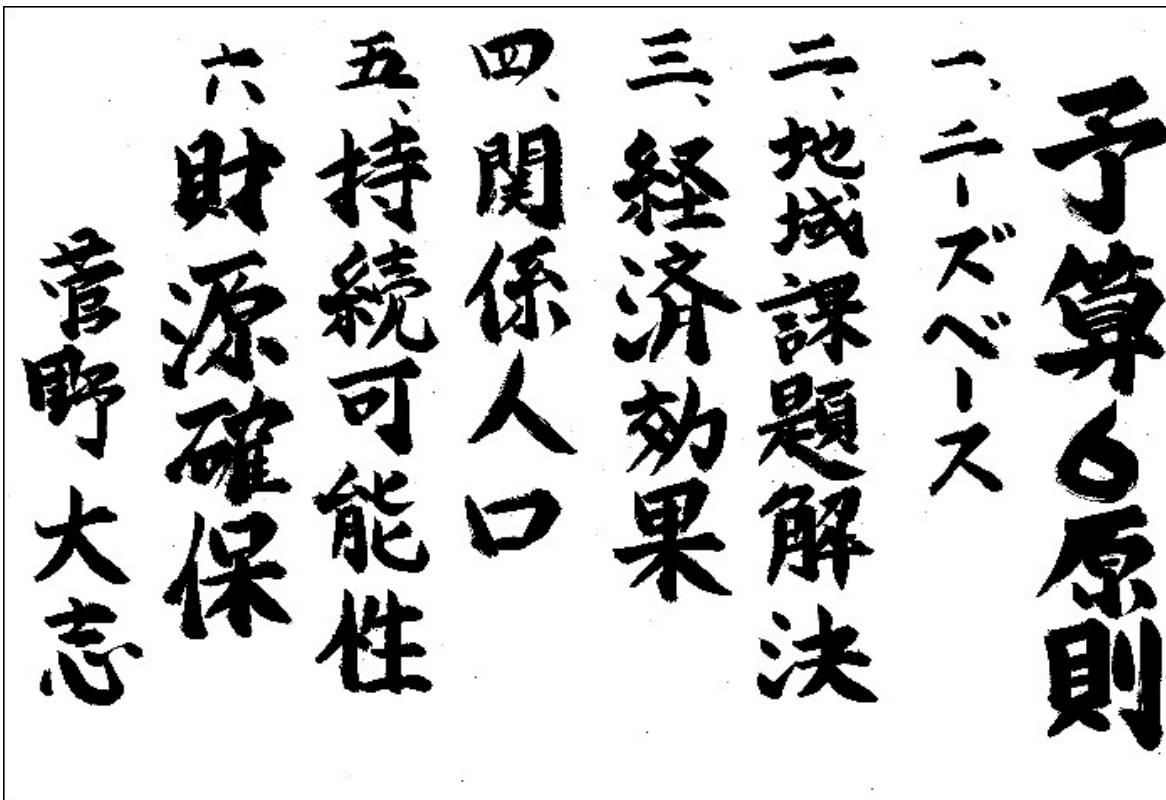 予算6原則
一、ニーズベース
二、地域課題解決
三、経済効果
四、関係人口
五、持続可能性
六 財源確保
菅野大志